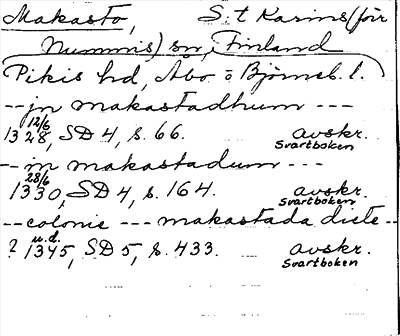 Makasto, S:t Karins (förr
Nummis) sn, Finland
Pikis hd, Åbo o Björneb. l.
--jn makastadhum ---
1328 12/6, SD 4, s. 66. avskr. Svartboken
--in makastadum ---
1330 28/6, SD 4, s. 164. avskr. Svartboken
--colonie --- makastada diete --
? 1345 u.d., SD 5, s. 433. avskr. Svartboken